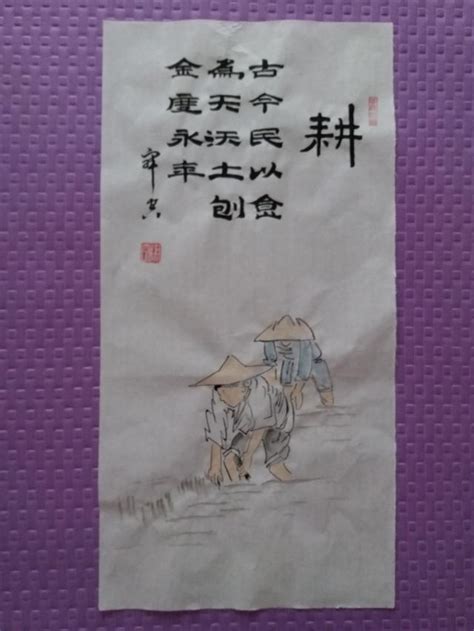 耕
古今民以食
為天沃土刨
金度永年